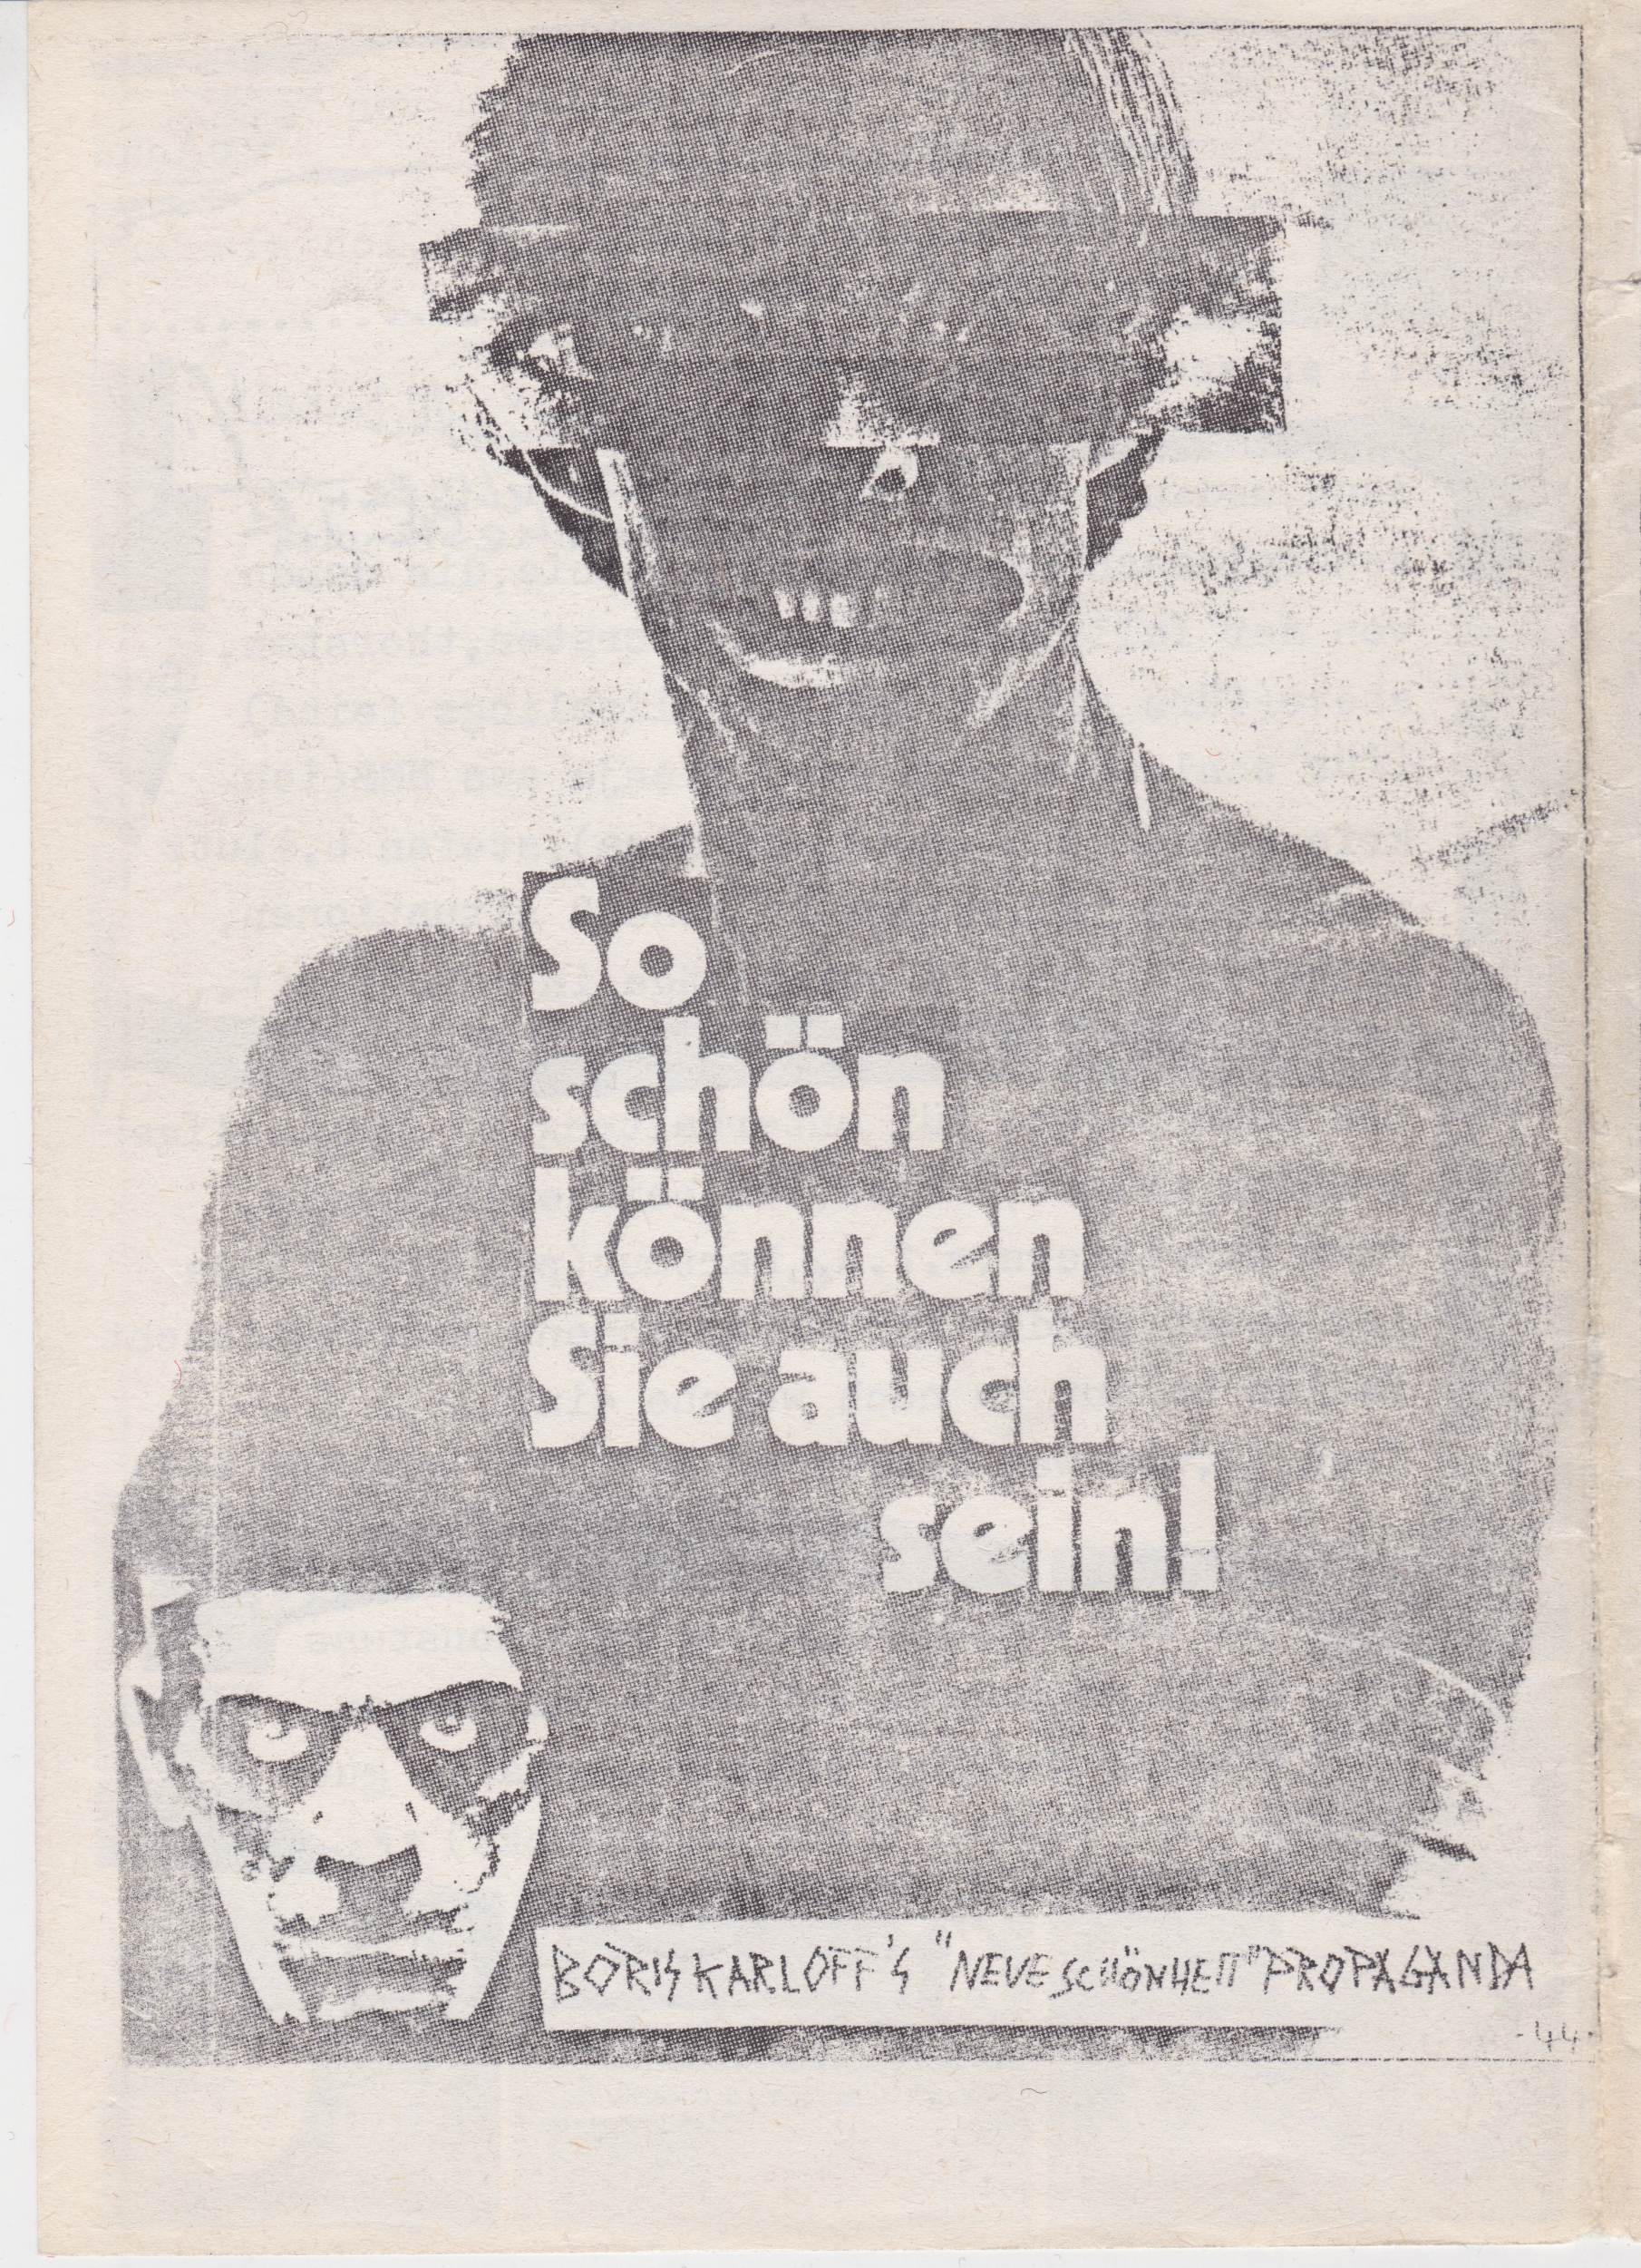 So
schön
können
Sie auch
sein!
BORIS KARLOFF'S "NEUE SCHÖNHEIT" PROPAGANDA
-44-